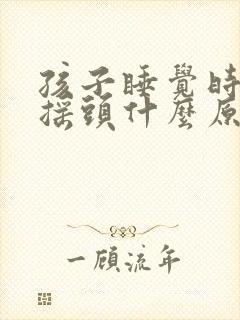 孩子睡覺時
搖頭什麼原
一顧流年